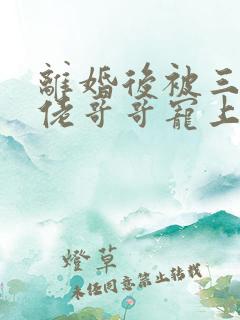 離婚後被三
佬哥哥寵上
燈草
未任同意禁止轉載